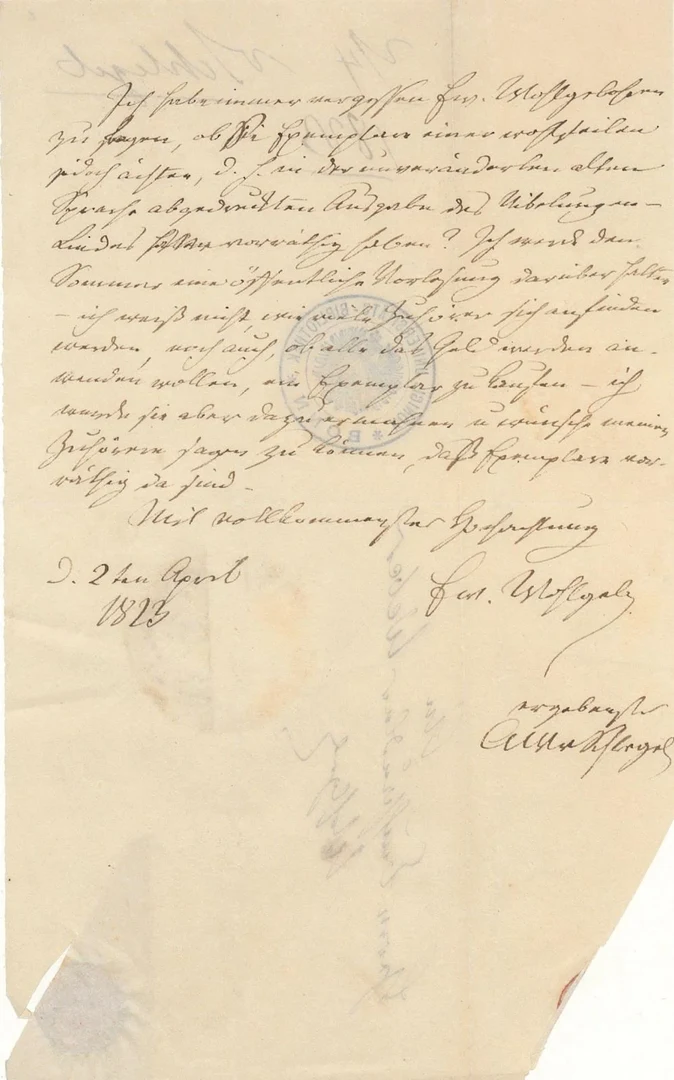 Ich habe immer vergessen Ew. Wohlgebohren
zu fragen, ob Sie Exemplare einer wohlfeilen
jedoch ächten, d. h. in der unveränderten alten
Sprache abgedruckten Ausgabe des Nibelungen-
Liedes vorräthig haben? Ich werde den
Sommer eine öffentliche Vorlesung darüber halten
– ich weiß nicht, wie viele Zuhörer sich einfinden
werden, noch auch, ob alle das Geld werden an-
wenden wollen, ein Exemplar zu kaufen – ich
werde sie aber dazu ermahnen u wünsche meinen
Zuhörern sagen zu können, daß Exemplare vor-
räthig da sind.
Mit vollkommenster Hochachtung
D. 2ten April
1823
Ew. Wohlgeb
ergebenster
AWvSchlegel